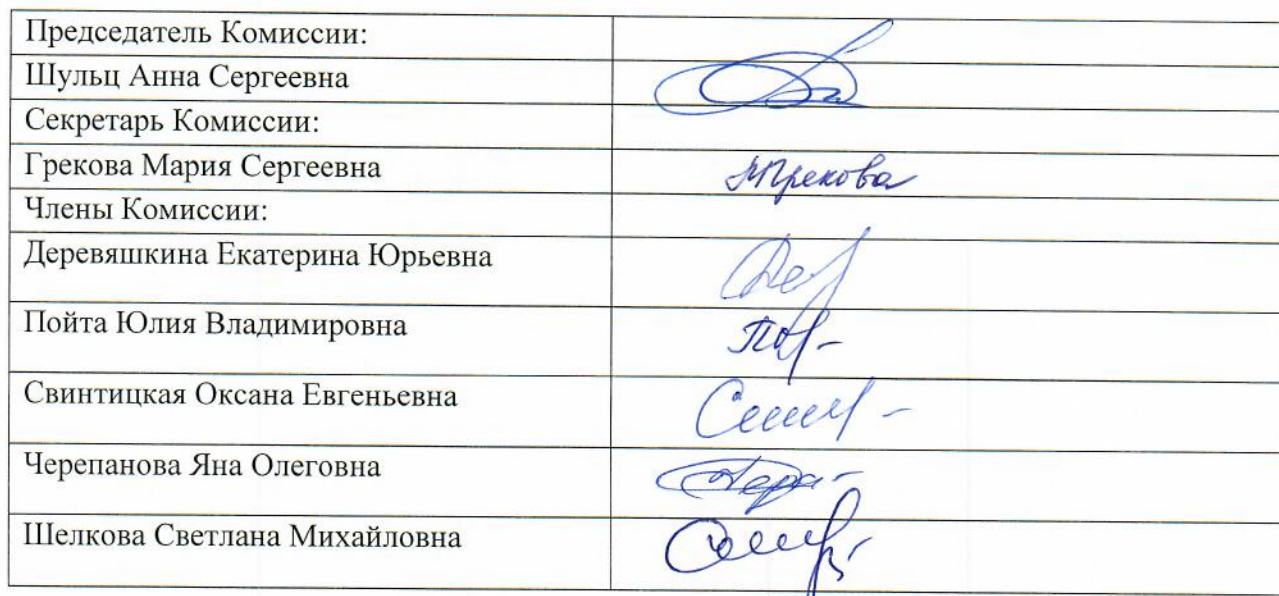 Председатель Комиссии:
Шульц Анна Сергеевна
Секретарь Комиссии:
Грекова Мария Сергеевна МГрекова
Члены Комиссии:
Деревяшкина Екатерина Юрьевна
Пойта Юлия Владимировна
Свинтицкая Оксана Евгеньевна
Черепанова Яна Олеговна
Шелкова Светлана Михайловна